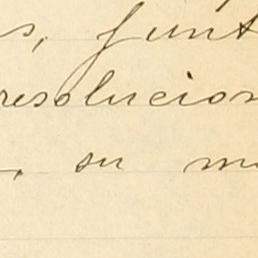 s, junt
resolucion
su m